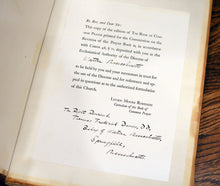 Rt. Rev. and Dear Sir:
This copy of the edition of The Book of Common
Prayer printed for the Commission on the
Revision of the Prayer Book is, in accordance
with Canon 48, § , deposited with you as the
Ecclesiastical Authority of the Diocese of
Western Massachusetts
to be held by you and your successors in trust for
the use of the Diocese and for reference and
in questions as to the authorized formularies
of this Church.
Custodian of the Book of
Common Prayer
To The Right Reverend
Thomas Frederick Davies, D.D.
Bishop of Western Massachusetts
Springfield,
Massachusetts